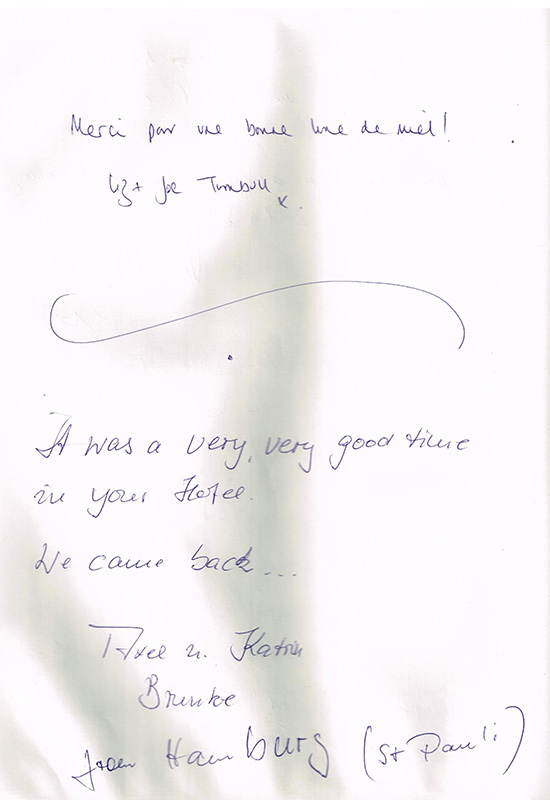 Merci pour une bonne lune de miel!
Liz + Joe Turnbull x.
It was a very, very good time
in your Hotel.
We came back...
Axel u. Katrin
Brunke
from Hamburg (St Pauli)